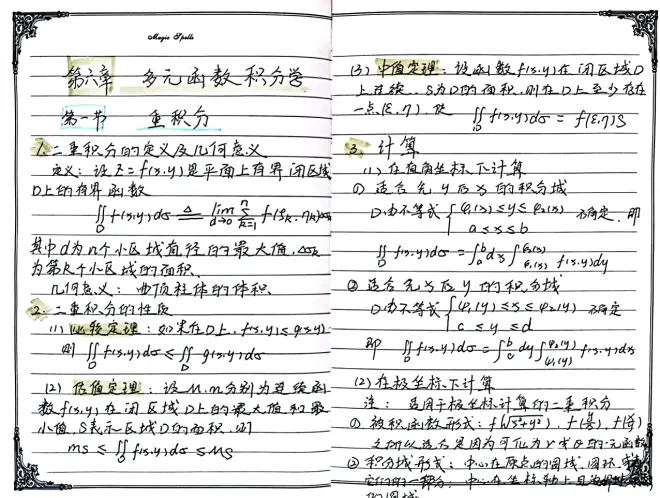 Magic Spells
第六章 多元函数积分学
第一节 重积分
1. 二重积分的定义及几何意义
定义：设 z = f(x,y) 是平面上有界闭区域
D上的有界函数
∬_D f(x,y)dσ ≜ lim_{d→0} Σ_{k=1}^{n} f(ξk, ηk)Δσk
其中d为n个小区域直径的最大值，Δσk
为第k个小区域的面积、
几何意义：曲顶柱体的体积、
2. 二重积分的性质
(1) 比较定理：如果在D上，f(x,y)≤g(x,y)
则 ∬_D f(x,y)dσ ≤ ∬_D g(x,y)dσ
(2) 估值定理：设M,m分别为连续函
数f(x,y)在闭区域D上的最大值和最
小值，S表示区域D的面积，则
mS ≤ ∬_D f(x,y)dσ ≤ MS
(3) 中值定理：设函数f(x,y)在闭区域D
上连续，S为D的面积，则在D上至少存在
一点(ξ,η)，使 ∬_D f(x,y)dσ = f(ξ,η)S
3. 计算
(1) 在直角坐标下计算
① 适合先y后x的积分域
D由不等式 { φ₁(x)≤y≤φ₂(x) a≤x≤b 确定，即
∬_D f(x,y)dσ = ∫_a^b dx ∫_{φ₁(x)}^{φ₂(x)} f(x,y)dy
② 适合先x后y的积分域
D由不等式 { φ₁(y)≤x≤φ₂(y) c≤y≤d 确定
即 ∬_D f(x,y)dσ = ∫_c^d dy ∫_{φ₁(y)}^{φ₂(y)} f(x,y)dx
(2) 在极坐标下计算
注：适用于极坐标计算的二重积分
① 被积函数形式：f(√(x²+y²)), f(y/x), f(x/y)
之所以适合是因为可化为r或θ的一元函数
② 积分域形式：中心在原点的圆域，圆环，或
它们的一部分；中心在坐标轴上且
的圆域